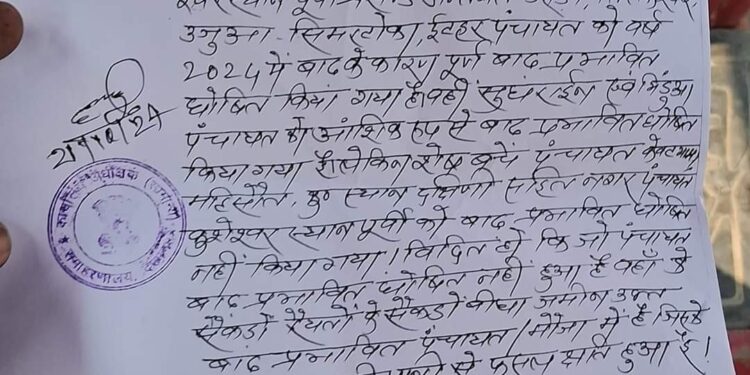 उजुआ - सिमरटोका, ईटहर पंचायत को वर्ष
2024 में बाढ़ के कारण पूर्ण बाढ़ प्रभावित
घोषित किया गया है। वहीं सुघराईन एवं भिंडुआ
पंचायत को आंशिक रूप से बाढ़ प्रभावित घोषित
किया गया है। लेकिन शेष बचे पंचायत केवटगामा
महिसौत, कु० स्थान दक्षिणी सहित नगर पंचायत
कुशेश्वर स्थान पूर्वी को बाढ़ प्रभावित घोषित
नहीं किया गया। विदित हो कि जो पंचायत
बाढ़ प्रभावित घोषित नहीं हुआ है वहाँ के
सैंकड़ों रैयतों के सैंकड़ों बीघा जमीन उक्त
बाढ़ प्रभावित पंचायत / मौजा में है जिसके
से फसल क्षति हुआ है।
समाहरणालय